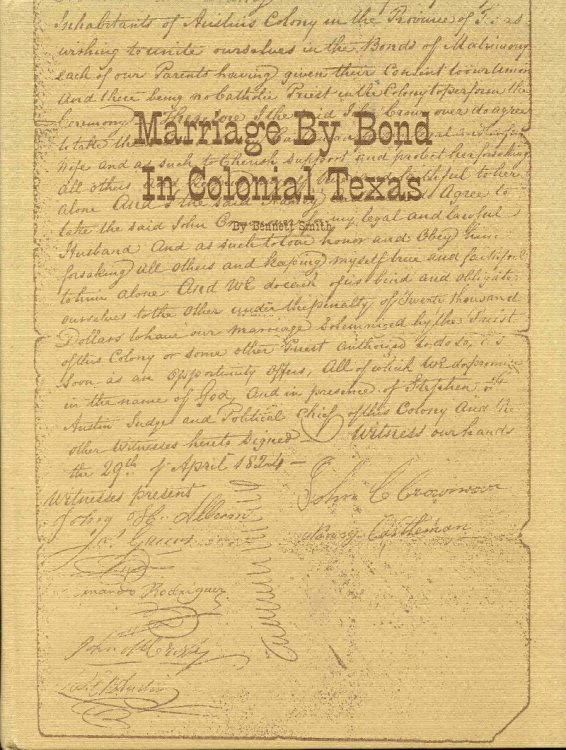 Inhabitants of Austins Colony in the Province of Texas
wishing to unite ourselves in the Bonds of Matrimony
each of our Parents having given their Consent to our Union
And there being no Catholic Priest in the Colony to perform the
Ceremony Therefore I the said John Crownover do agree
to take the
Marriage By Bond
Wife and as such to Cherish support and protect her forsaking
all others
faithful to her
In Colonial Texas
alone And I the said
Agree to
take the said John
my legal and lawful
By Bennett Smith
Husband And as such to love honor and Obey him
forsaking all others and keeping myself true and faithful
to him alone And we do each of us bind and obligate
ourselves to the other under the penalty of Twenty thousand
Dollars to have our marriage Solemnized by the Priest
of this Colony or some other Priest authorized to do so, as
Soon as an opportunity offers, All of which we do promise
in the name of God, And in presence of Stephen F.
Austin Judge and Political Chief of this Colony And the
other Witnesses hereto Signed Witness our hands
the 29th of April 1824 —
Witnesses present
John C Crownover
Nancy Castleman